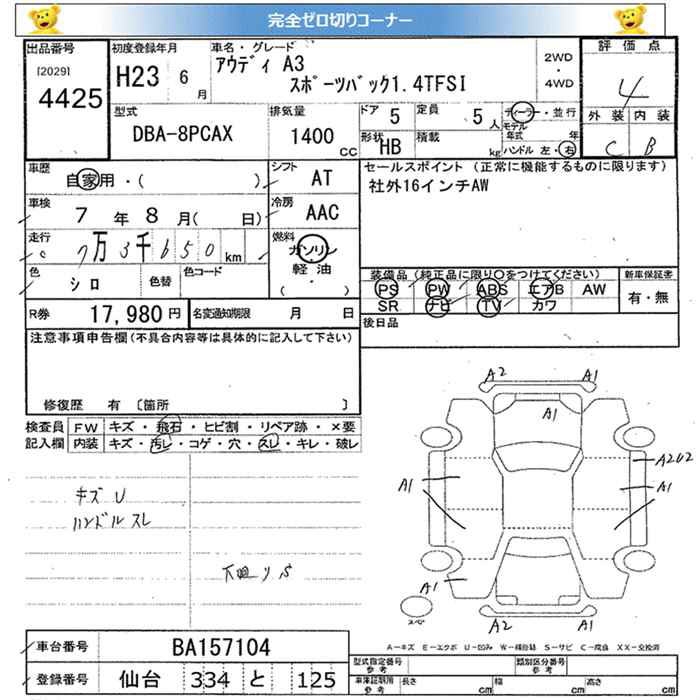 完全ゼロ切りコーナー
出品番号 初度登録年月 車名・グレード 評価点
[2029] 4425 H23 6月 アウディ A3 2WD・4WD 4
スポーツバック1.4TFSI
外装 内装
C B
型式 排気量 ドア 5 定員 5人 ディーラー・並行
DBA-8PCAX 1400CC モデル年式 年
形状 HB 積載 kg ハンドル 左・右
車歴 自家用・( ) シフト AT セールスポイント (正常に機能するものに限ります)
社外16インチAW
車検 7年8月( 日) 冷房 AAC
走行 7万3千650km 燃料 ガソリン
軽油
( ・ )
色 シロ 色替 色コード 装備品(純正品に限り〇をつけてください) 新車保証書
PS PW ABS エアB AW 有・無
SR ナビ TV カワ
R券 17,980円 名変通知期限 月 日 後日品
注意事項申告欄(不具合内容等は具体的に記入して下さい)
修復歴 有 〔箇所 〕
検査員 FW キズ・飛石・ヒビ割・リペア跡・×要
記入欄 内装 キズ・汚レ・コゲ・穴・スレ・キレ・破レ
キズ U
ハンドル スレ
下廻り S
A2 A1
A1
A1 A1 A2U2
A1
A2 A1
スペア
A-キズ E-エクボ U-凹み W-補修跡 S-サビ C-腐食 XX-交換済
車台番号 BA157104
登録番号 仙台 334 と 125
型式指定番号 参考 類別区分番号 参考
車庫証明用 参考 長さ cm 幅 cm 高さ cm